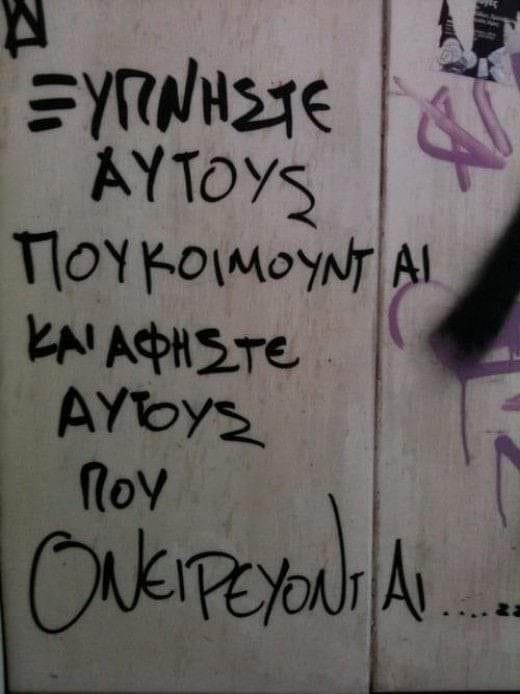 ΞΥΠΝΗΣΤΕ
ΑΥΤΟΥς
ΠΟΥ ΚΟΙΜΟΥΝΤΑΙ
ΚΑΙ ΑΦΗΣΤΕ
ΑΥΤΟΥΣ
ΠΟΥ
ΟΝΕΙΡΕΥΟΝΤΑΙ....